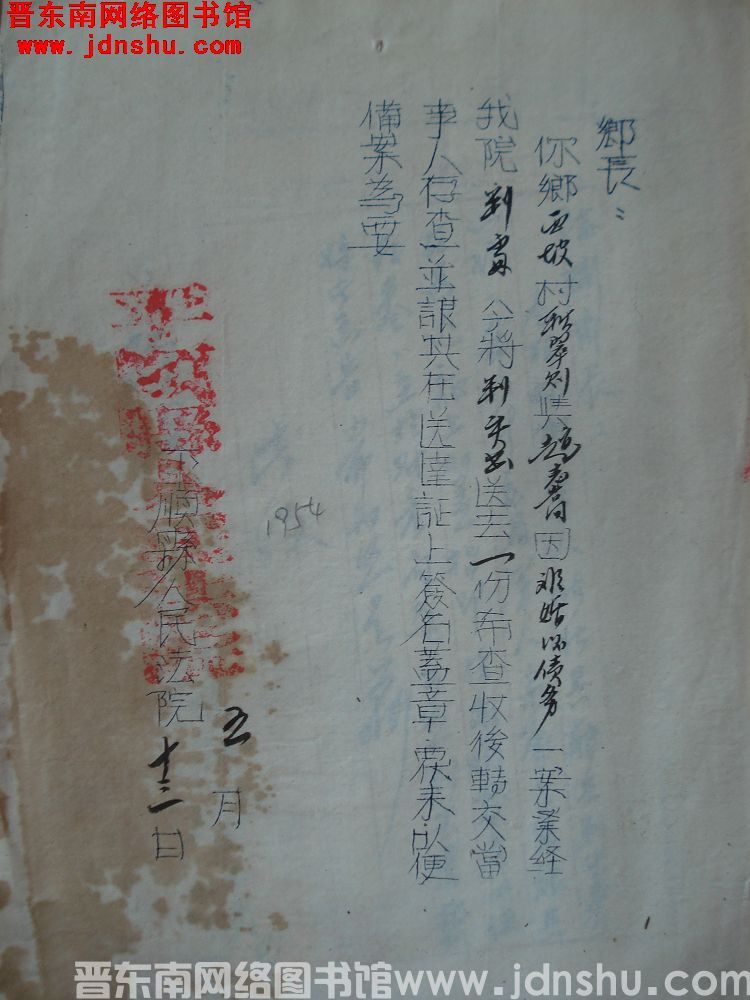 晋东南网络图书馆
www.jdnshu.com
鄉長：
你鄉西坡村翠则與趙書因非婚怀债务一案業経
我院判 今将判 送去一份希查收後轉交當
事人存查並讓其在送達証上簽名蓋章 来以便
備案為要
平順縣人民法院
1954
五月
十三日
晋东南网络图书馆www.jdnshu.com